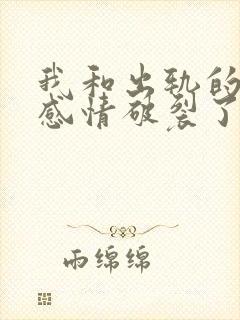 我和出轨的
感情破裂了
雨绵绵